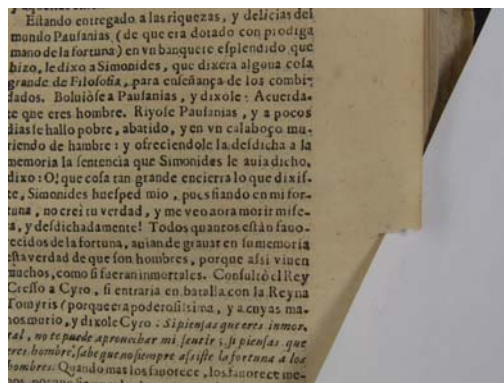 Estando entregado a las riquezas, y delicias del
mundo Pausanias (de que era dotado con prodiga
mano de la fortuna) en vn banquete esplendido que
hizo, le dixo a Simonides, que dixera alguna cosa
grande de Filosofia, para enseñança de los combi-
dados. Boluiòse a Pausanias, y dixole: Acuerda-
te que eres hombre. Riyose Pausanias, y a pocos
dias se hallo pobre, abatido, y en vn calaboço mu-
riendo de hambre: y ofreciendole la desdicha a la
memoria la sentencia que Simonides le auia dicho,
dixo: O! que cosa tan grande encierra lo que dixis-
te, Simonides huesped mio, pues fiando en mi for-
tuna, no crei tu verdad, y me veo aora morir mise-
ra, y desdichadamente! Todos quantos estàn fauo-
recidos de la fortuna, auian de grauar en su memoria
esta verdad de que son hombres, porque assi viuen
muchos, como si fueran inmortales. Consultò el Rey
Cresso a Cyro, si entraria en batalla con la Reyna
Tomyris (porque era poderosissima, y a cuyas ma-
nos murio, y dixole Cyro: Si piensas que eres inmor-
tal, no te puede aprouechar mi sentir; si piensas que
eres hombre, sabe que no siempre assiste la fortuna a los
hombres: Quando mas los fauorece, los fauorece me-